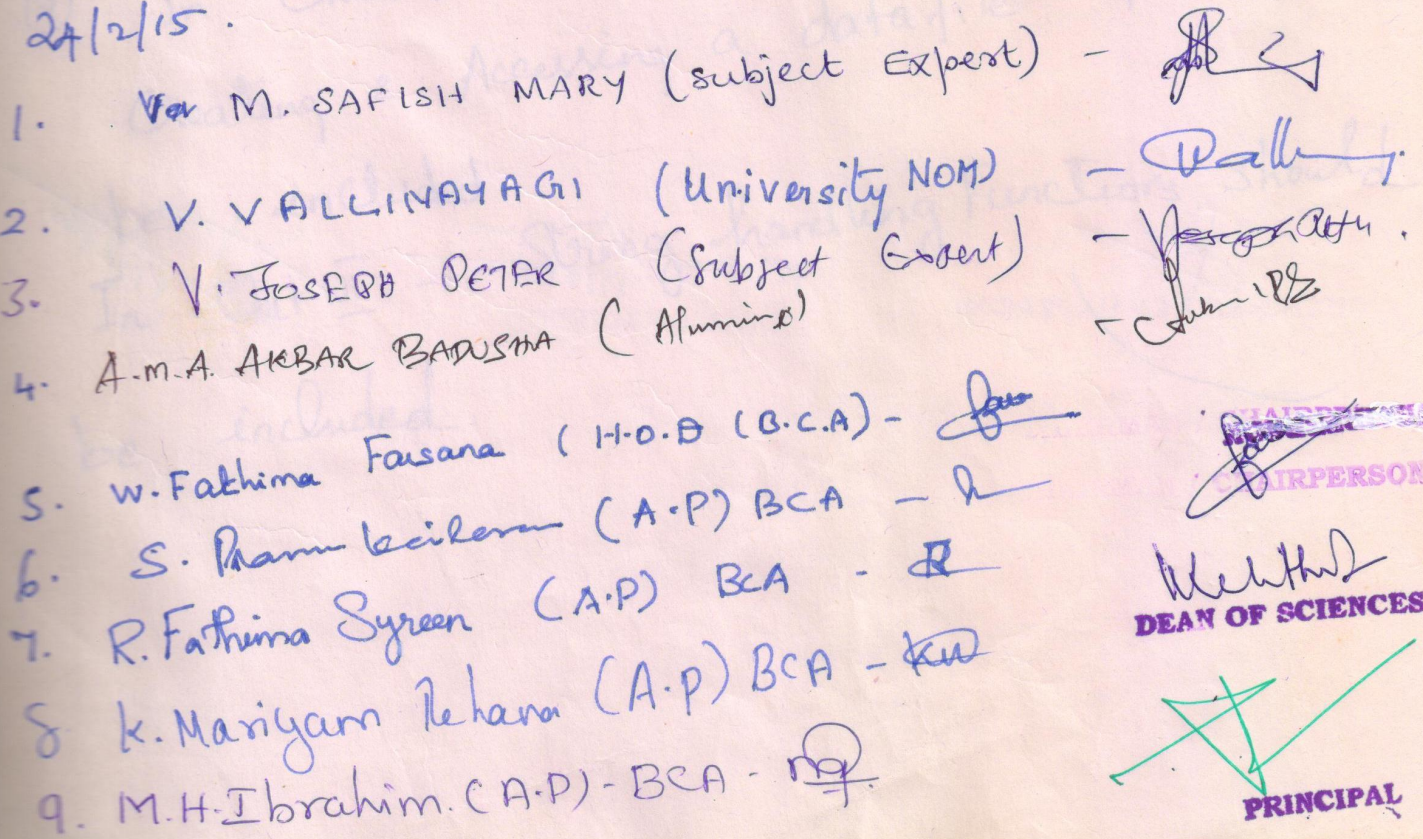 24/2/15.
1. M. SAFISH MARY (Subject Expert) -
2. V. VALLINAYAGI (University NOM) -
3. V. JOSEPH PETER (Subject Expert) -
4. A.M.A. AKBAR BADUSHA (Alumino) -
5. W. Fathima Farsana (H.O.D (B.C.A) -
6. S. (A.P) BCA -
7. R. Fathima Syreen (A.P) BCA -
8 K. Mariyam Rehana (A.P) BCA -
9. M.H. Ibrahim. (A.P) - BCA -
CHAIRPERSON
DEAN OF SCIENCES
PRINCIPAL